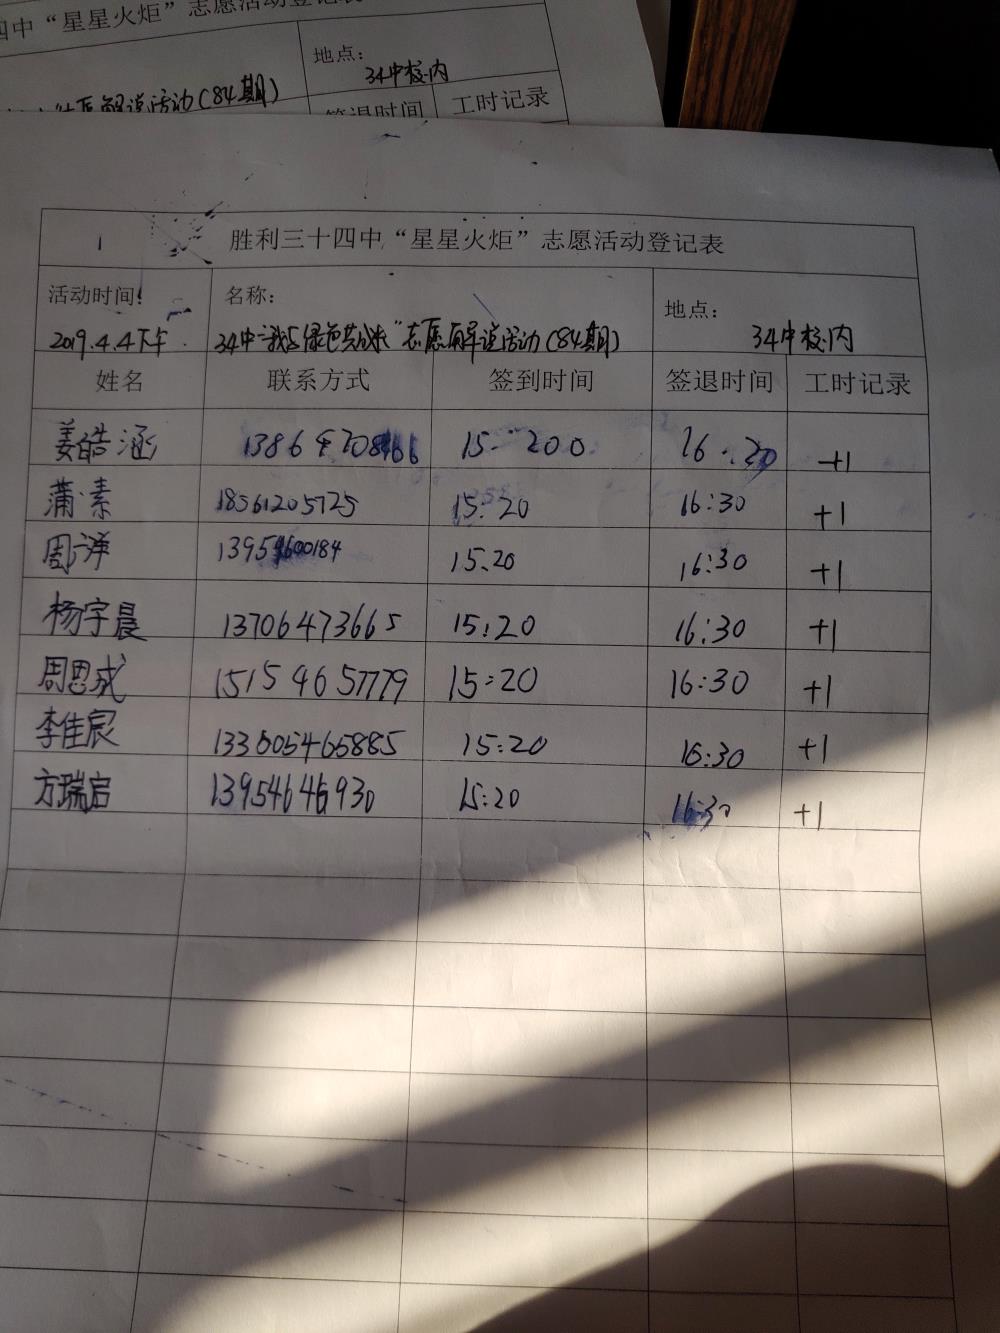 四中“星星火炬”志愿活动登记表
地点：
34中校内
志愿解说活动(84期)
签退时间 工时记录
1 胜利三十四中“星星火炬”志愿活动登记表
活动时间： 名称： 地点：
2019.4.4下午 34中“我与绿色共成长”志愿解说活动(84期) 34中校内
姓名 联系方式 签到时间 签退时间 工时记录
姜皓涵 15:20 16:20 +1
蒲素 18561205725 15:20 16:30 +1
周洋 15:20 16:30 +1
杨宇晨 13706473665 15:20 16:30 +1
周思成 15154657779 15:20 16:30 +1
李佳宸 133605465885 15:20 16:30 +1
方瑞启 13954646930 15:20 16:30 +1